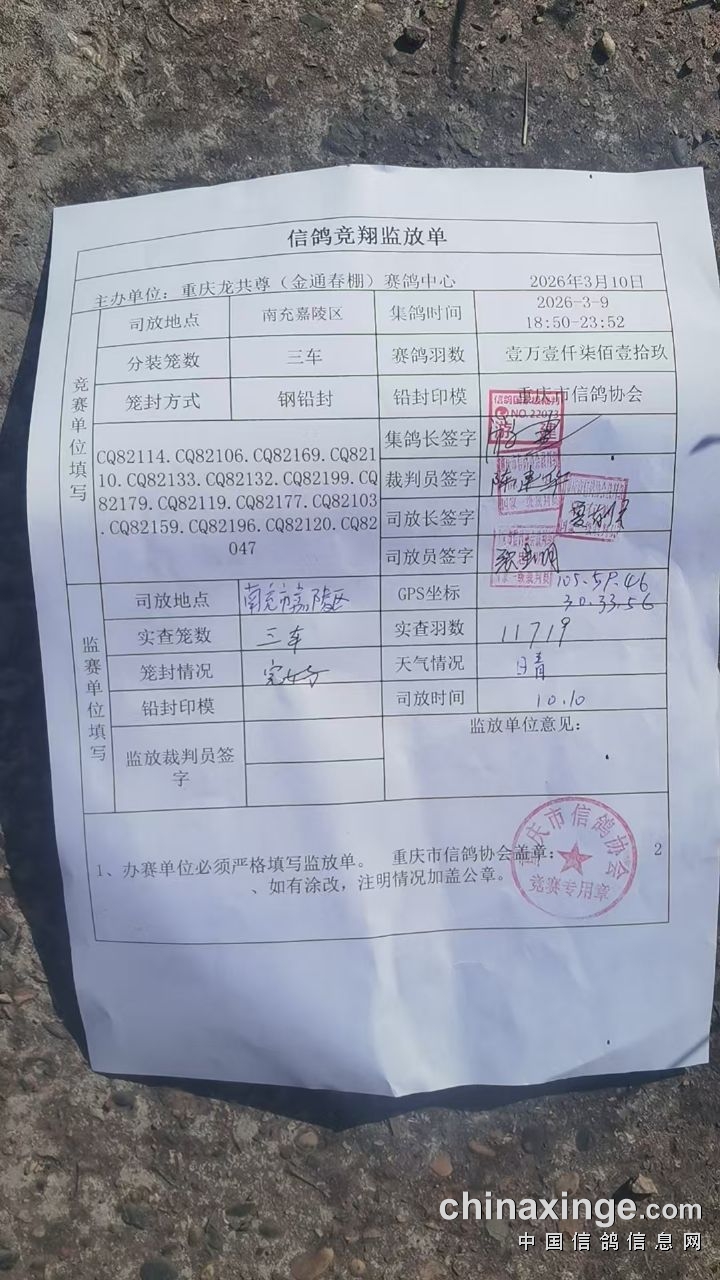 信鸽竞翔监放单
主办单位：重庆龙共尊（金通春棚）赛鸽中心 2026年3月10日
竞赛单位填写
司放地点 南充嘉陵区 集鸽时间 2026-3-9
18:50-23:52
分装笼数 三车 赛鸽羽数 壹万壹仟柒佰壹拾玖
笼封方式 钢铅封 铅封印模 重庆市信鸽协会
CQ82114.CQ82106.CQ82169.CQ821
10.CQ82133.CQ82132.CQ82199.CQ
82179.CQ82119.CQ82177.CQ82103
.CQ82159.CQ82196.CQ82120.CQ82
047
集鸽长签字
NO.22073
裁判员签字
司放长签字
司放员签字
监赛单位填写
司放地点 南充市嘉陵区 GPS坐标 105.59.46
30.33.56
实查笼数 三车 实查羽数 11719
笼封情况 完好 天气情况 晴
铅封印模 司放时间 10.10
监放裁判员签
字
监放单位意见：
1、办赛单位必须严格填写监放单。 重庆市信鸽协会盖章： 2
、如有涂改，注明情况加盖公章。
重庆市信鸽协会
竞赛专用章
chinaxinge.com
中国信鸽信息网